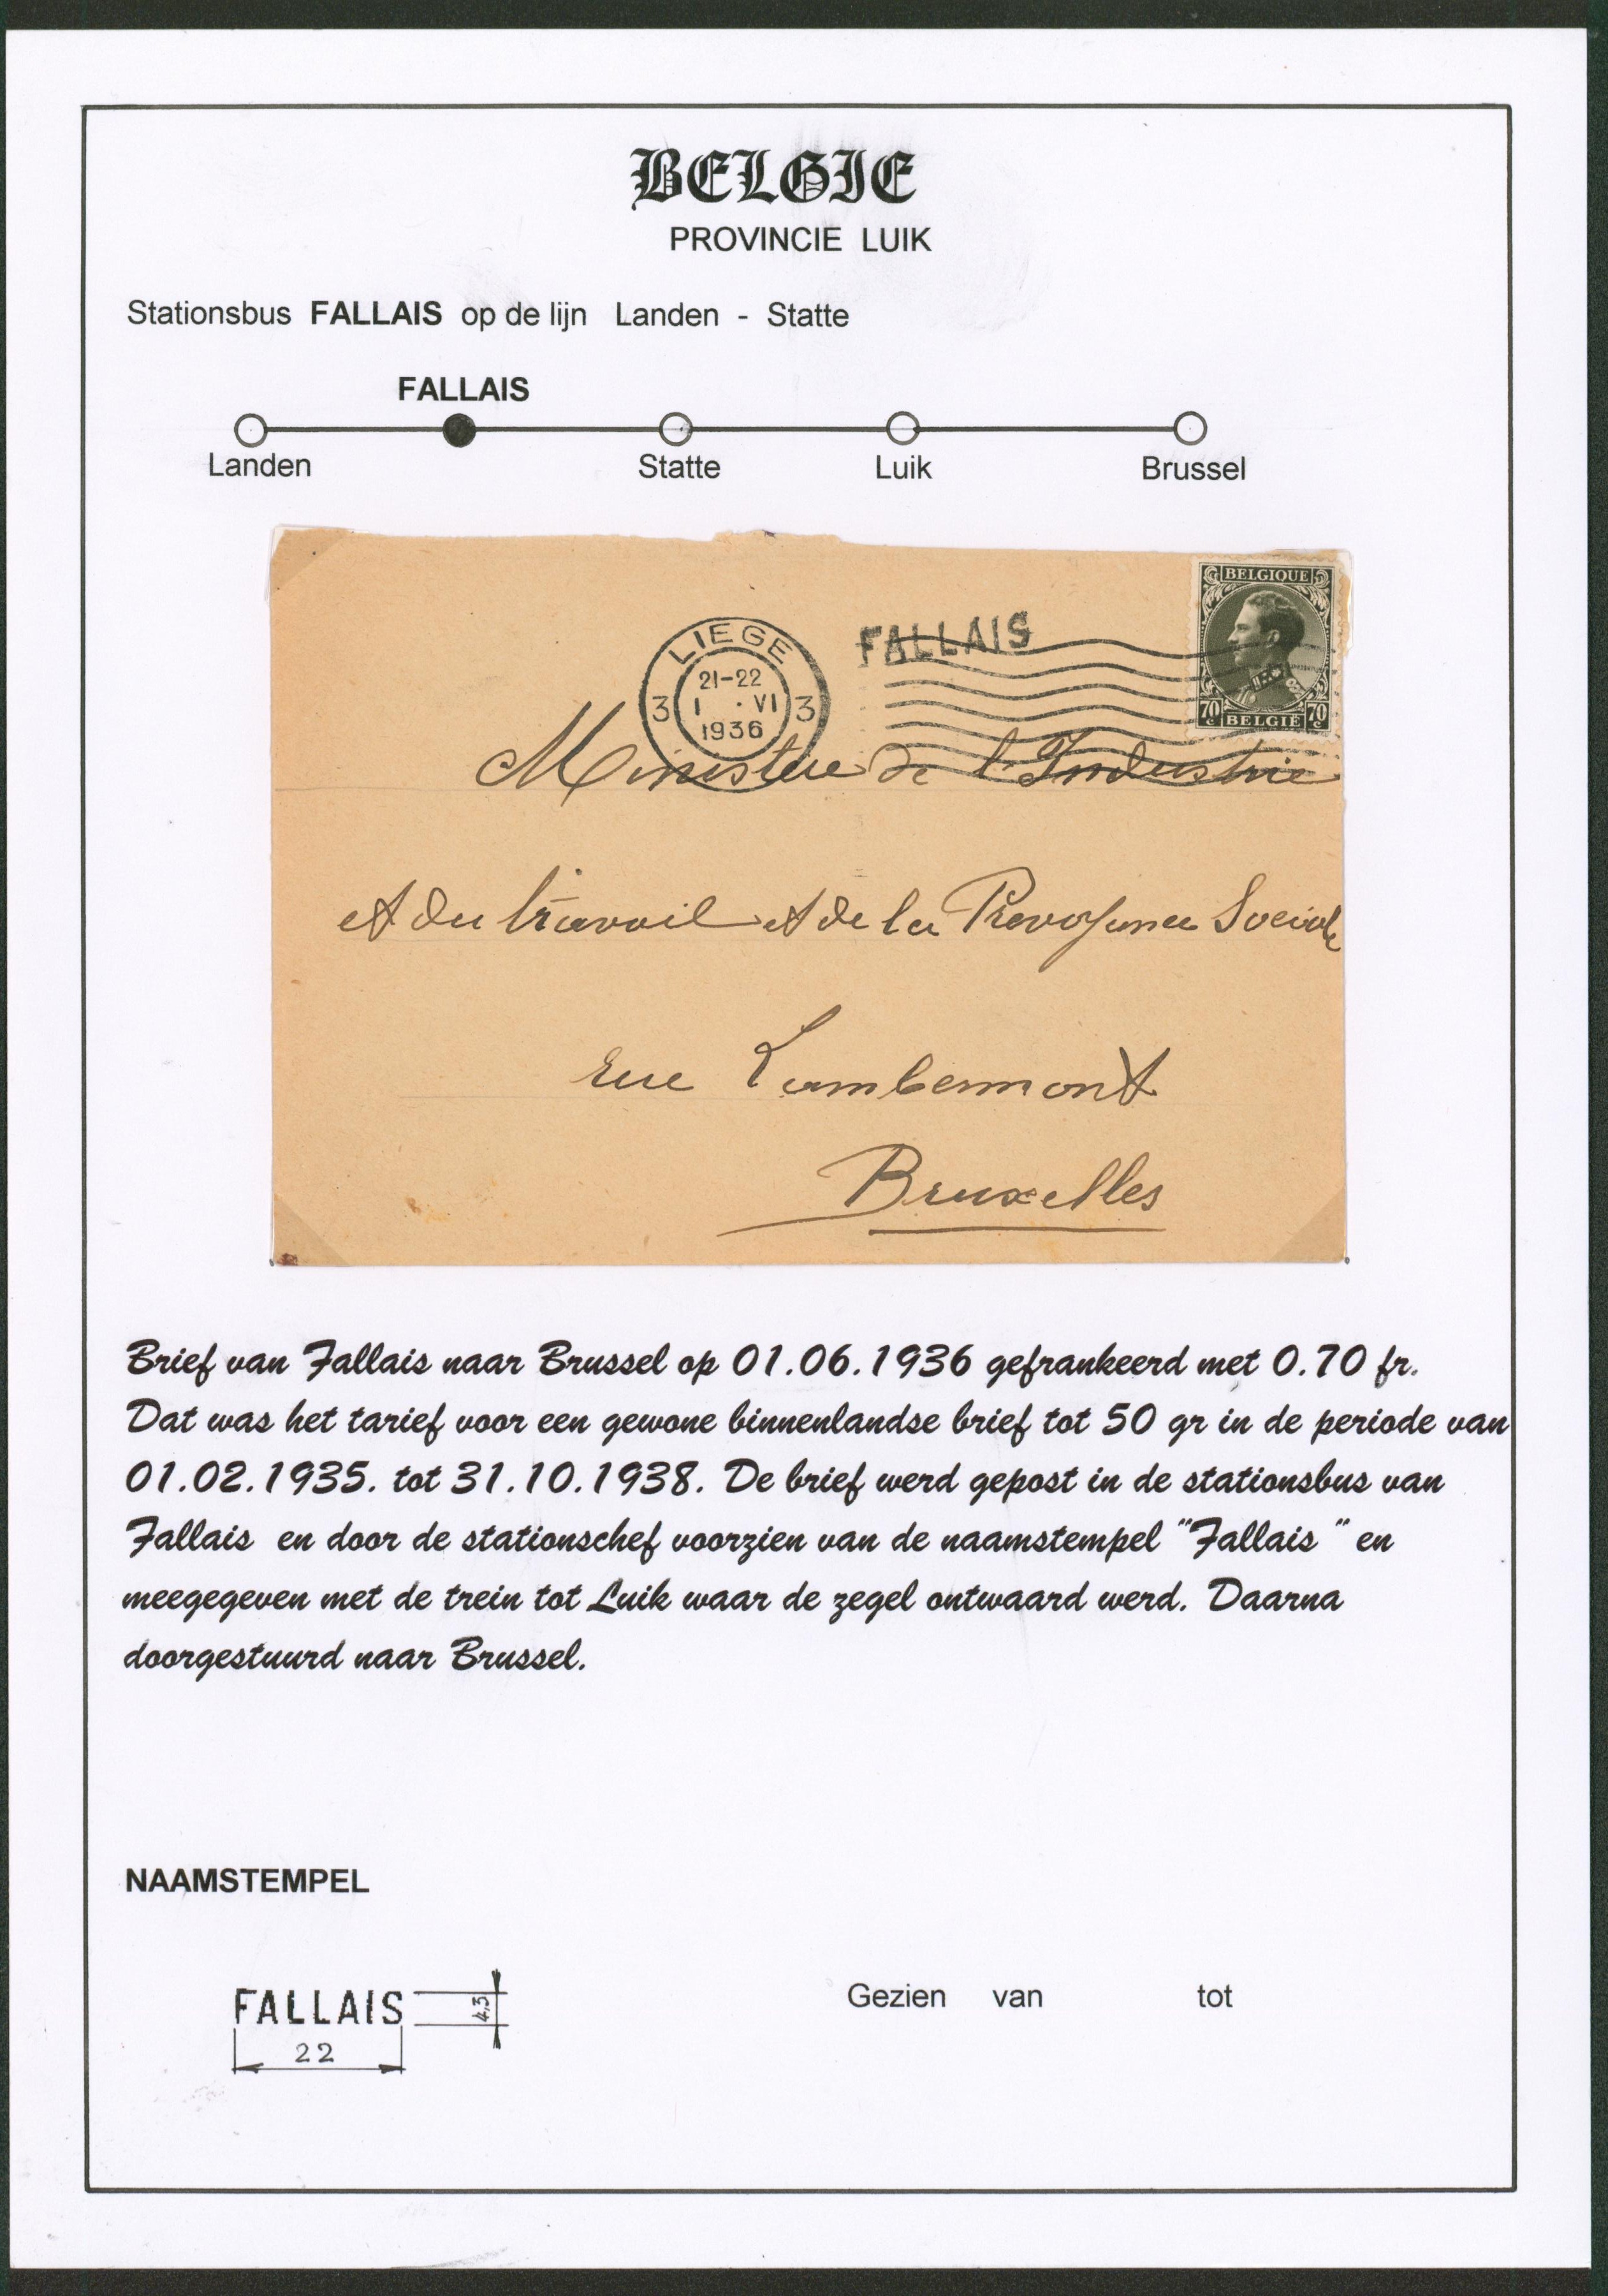 BELGIE
PROVINCIE LUIK
Stationsbus FALLAIS op de lijn Landen - Statte
FALLAIS
Landen Statte Luik Brussel
BELGIQUE
70 c BELGIË 70 c
FALLAIS
LIEGE
21-22
3 1 · VI 3
1936
Ministere de l'Industrie
et du travail et de la Prevoyance Sociale
rue Lambermont
Bruxelles
Brief van Fallais naar Brussel op 01.06.1936 gefrankeerd met 0.70 fr.
Dat was het tarief voor een gewone binnenlandse brief tot 50 gr in de periode van
01.02.1935. tot 31.10.1938. De brief werd gepost in de stationsbus van
Fallais en door de stationschef voorzien van de naamstempel "Fallais " en
meegegeven met de trein tot Luik waar de zegel ontwaard werd. Daarna
doorgestuurd naar Brussel.
NAAMSTEMPEL
FALLAIS 4,3
22
Gezien van tot